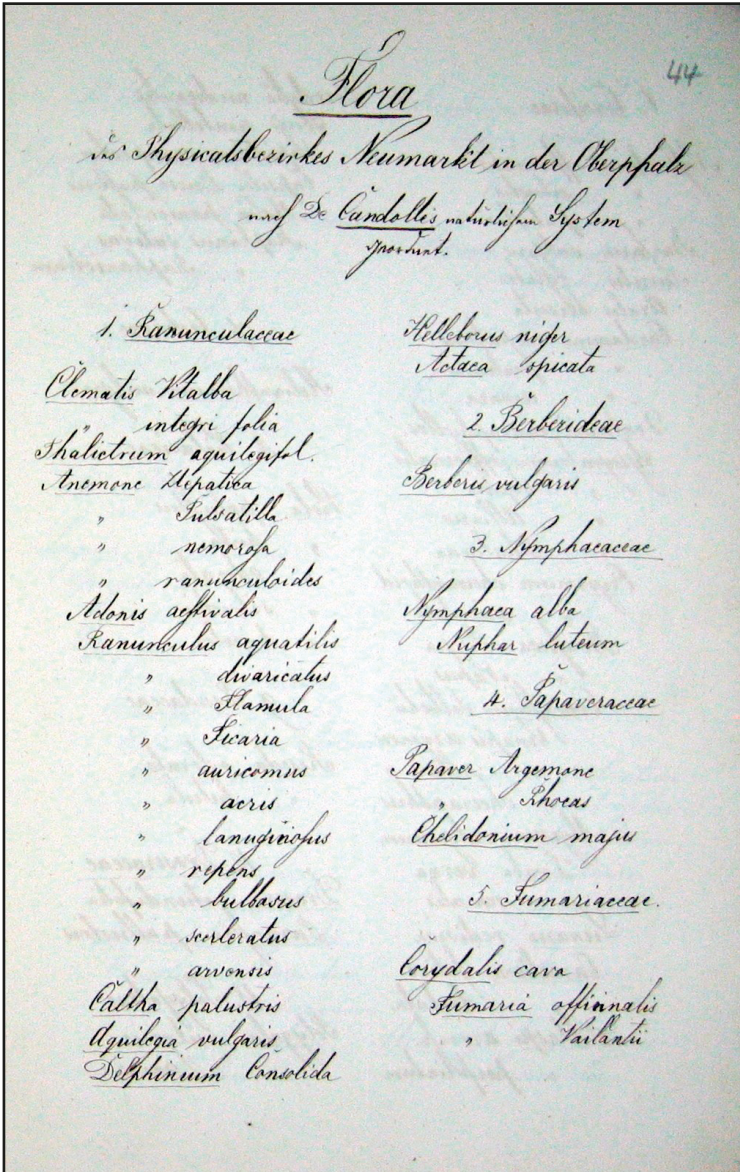 44
Flora
des Physicatsbezirkes Neumarkt in der Oberpfalz
nach De Candolles natürlichen System
geordnet.
1. Ranunculaceae
Clematis Vitalba
" integri folia
Thalictrum aquilegifol.
Anemone Hepatica
" Pulsatilla
" nemorosa
" ranunculoides
Adonis aestivalis
Ranunculus aquatilis
" divaricatus
" Flamula
" Ficaria
" auricomus
" acris
" lanuginosus
" repens
" bulbosus
" scerleratus
" arvensis
Caltha palustris
Aquilegia vulgaris
Delphinium Consolida
Helleborus niger
Actaea spicata
2. Berberideae
Berberis vulgaris
3. Nymphaeaceae
Nymphaea alba
Nuphar luteum
4. Papaveraceae
Papaver Argemone
" Rhoeas
Chelidonium majus
5. Fumariaceae.
Corydalis cava
Fumaria officinalis
" Vailantii